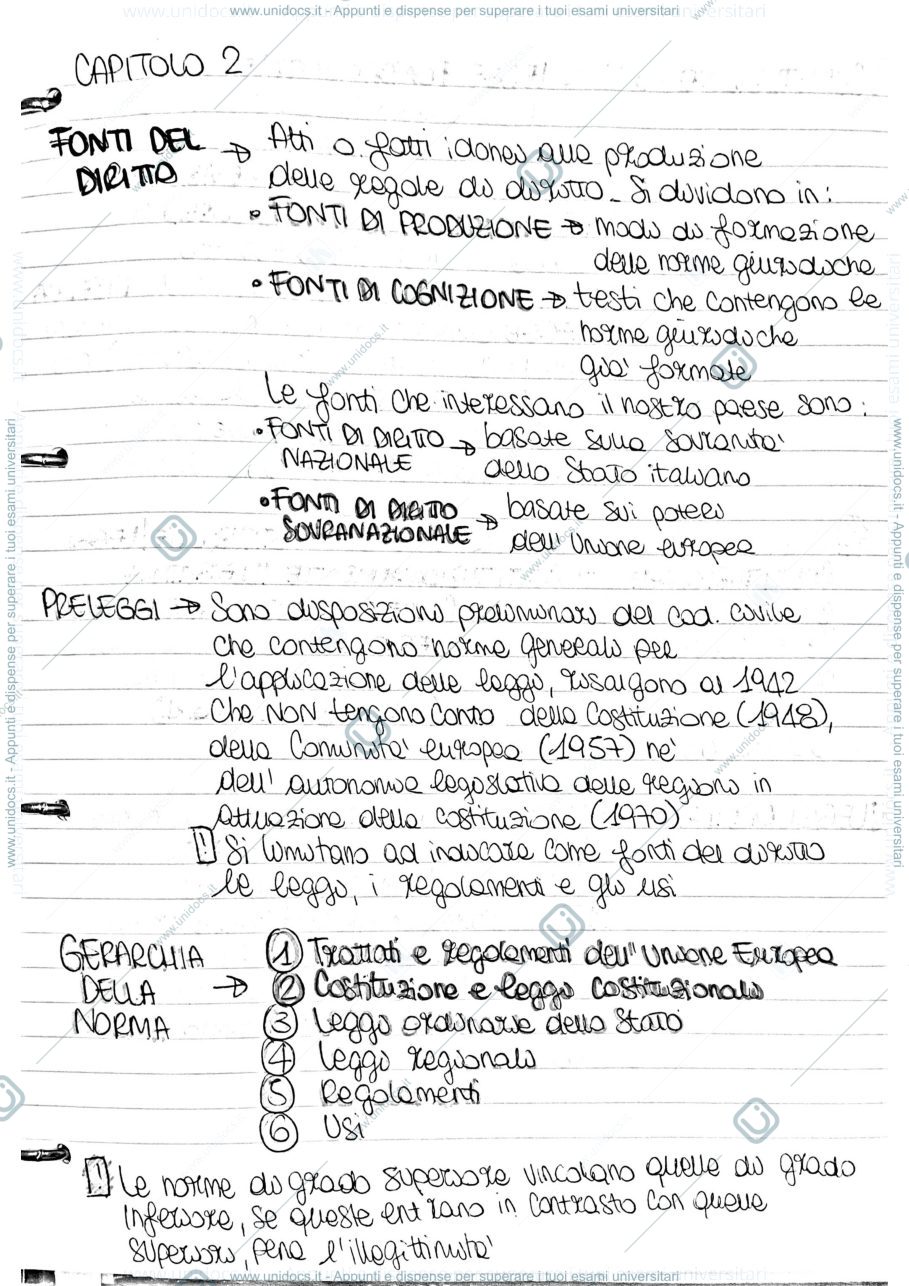 www.unidocs.it - Appunti e dispense per superare i tuoi esami universitari
CAPITOLO 2
FONTI DEL DIRITTO → Atti o fatti idonei alla produzione
delle regole di diritto. Si dividono in:
• FONTI DI PRODUZIONE → modi di formazione
delle norme giuridiche
• FONTI DI COGNIZIONE → testi che contengono le
norme giuridiche
già formate
Le fonti che interessano il nostro paese sono:
• FONTI DI DIRITTO NAZIONALE → basate sulla sovranità
dello Stato italiano
• FONTI DI DIRITTO SOVRANAZIONALE → basate sui poteri
dell'Unione europea
PRELEGGI → Sono disposizioni preliminari del cod. civile
che contengono norme generali per
l'applicazione delle leggi, risalgono al 1942
che NON tengono conto della Costituzione (1948),
della Comunità europea (1957) né
dell'autonomia legislativa delle regioni in
attuazione della costituzione (1970)
! Si limitano ad indicare come fonti del diritto
le leggi, i regolamenti e gli usi
GERARCHIA DELLA NORMA →
1 Trattati e regolamenti dell'Unione Europea
2 Costituzione e leggi costituzionali
3 Leggi ordinarie dello Stato
4 Leggi regionali
5 Regolamenti
6 Usi
! Le norme di grado superiore vincolano quelle di grado
inferiore, se queste entrano in contrasto con quelle
superiori, pena l'illegittimità
www.unidocs.it - Appunti e dispense per superare i tuoi esami universitari
www.unidocs.it - Appunti e dispense per superare i tuoi esami universitari
www.unidocs.it - Appunti e dispense per superare i tuoi esami universitari